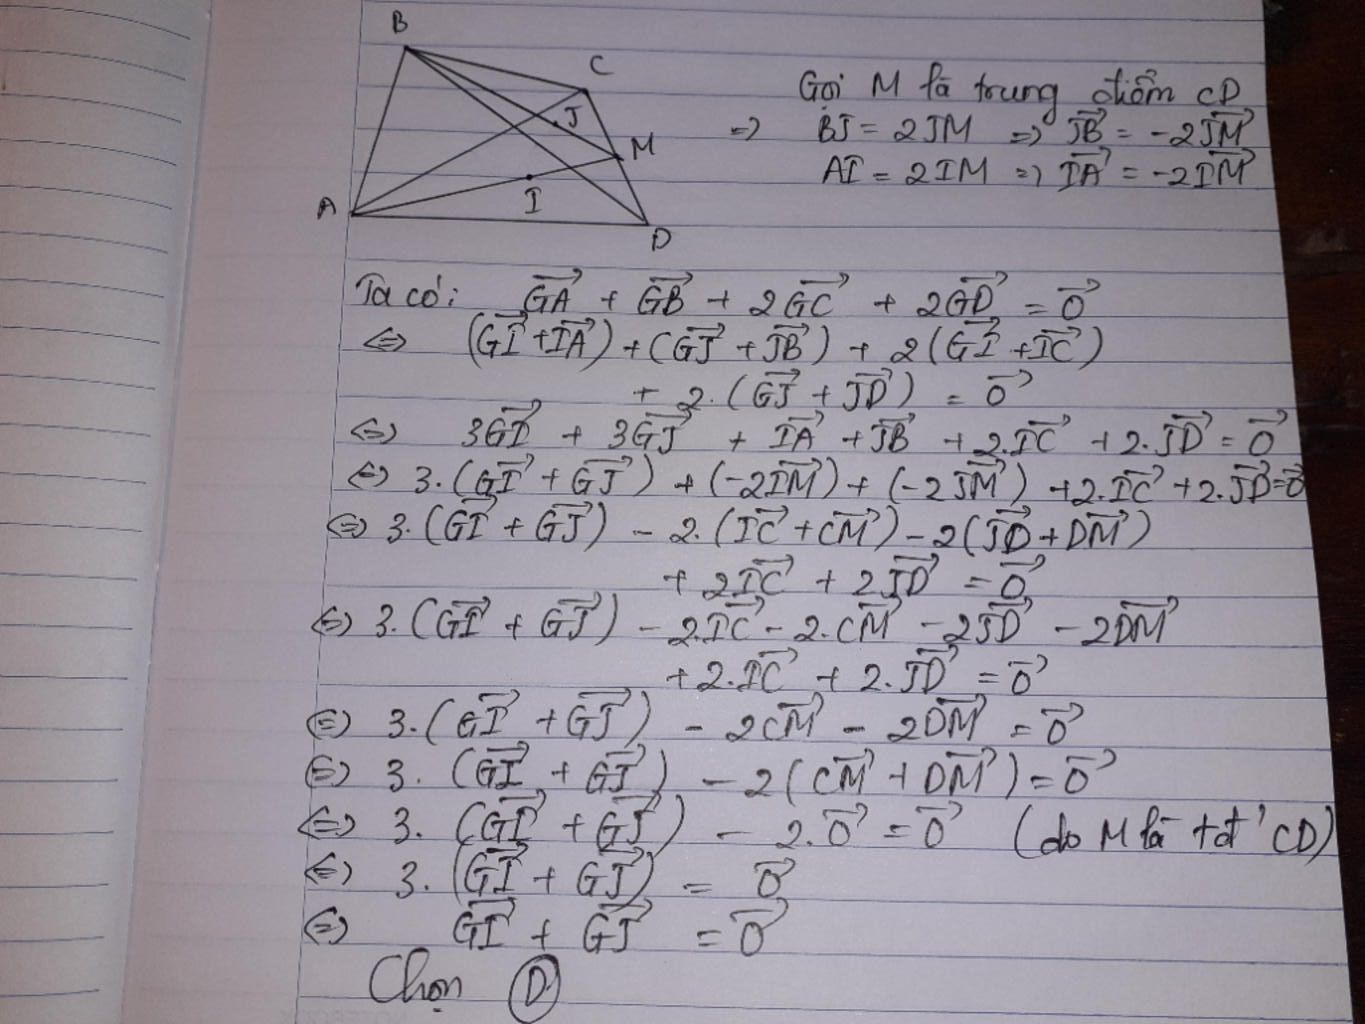 B
C
J
M
I
A
D
Gọi M là trung điểm CD
=> BJ = 2JM => \vec{JB} = -2\vec{JM}
AI = 2IM => \vec{IA} = -2\vec{IM}
Ta có: \vec{GA} + \vec{GB} + 2\vec{GC} + 2\vec{GD} = \vec{0}
<=> (\vec{GI} + \vec{IA}) + (\vec{GJ} + \vec{JB}) + 2(\vec{GI} + \vec{IC})
+ 2.(\vec{GJ} + \vec{JD}) = \vec{0}
<=> 3\vec{GI} + 3\vec{GJ} + \vec{IA} + \vec{JB} + 2.\vec{IC} + 2.\vec{JD} = \vec{0}
<=> 3.(\vec{GI} + \vec{GJ}) + (-2\vec{IM}) + (-2\vec{JM}) + 2.\vec{IC} + 2.\vec{JD} = \vec{0}
<=> 3.(\vec{GI} + \vec{GJ}) - 2.(\vec{IC} + \vec{CM}) - 2(\vec{JD} + \vec{DM})
+ 2\vec{IC} + 2\vec{JD} = \vec{0}
<=> 3.(\vec{GI} + \vec{GJ}) - 2.\vec{IC} - 2.\vec{CM} - 2\vec{JD} - 2\vec{DM}
+ 2.\vec{IC} + 2.\vec{JD} = \vec{0}
<=> 3.(\vec{GI} + \vec{GJ}) - 2\vec{CM} - 2\vec{DM} = \vec{0}
<=> 3.(\vec{GI} + \vec{GJ}) - 2(\vec{CM} + \vec{DM}) = \vec{0}
<=> 3.(\vec{GI} + \vec{GJ}) - 2.\vec{0} = \vec{0} (do M là tđ' CD)
<=> 3.(\vec{GI} + \vec{GJ}) = \vec{0}
<=> \vec{GI} + \vec{GJ} = \vec{0}
Chọn D
NOTEBOOK